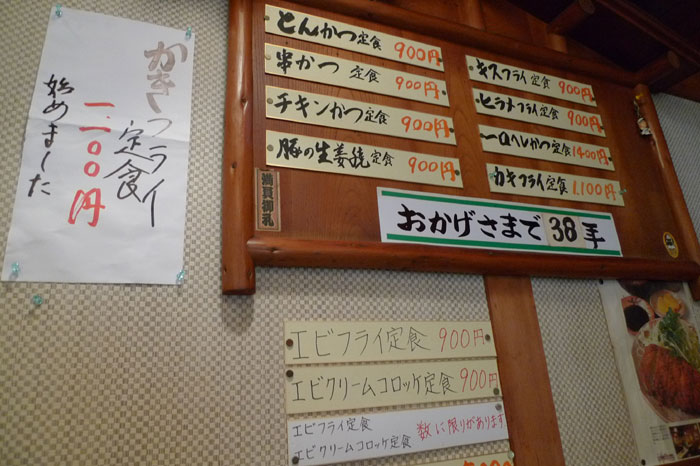 かきフライ
定食
一一〇〇円
始めました
とんかつ定食 900円
串かつ 定食 900円
チキンかつ定食 900円
豚の生姜焼定食 900円
キスフライ定食 900円
ヒラメフライ定食 900円
一口ヘレかつ定食 1400円
カキフライ定食 1,100円
満員御礼
おかげさまで 38年
エビフライ定食 900円
エビクリームコロッケ定食 900円
エビフライ定食
エビクリームコロッケ定食
数に限りがあります